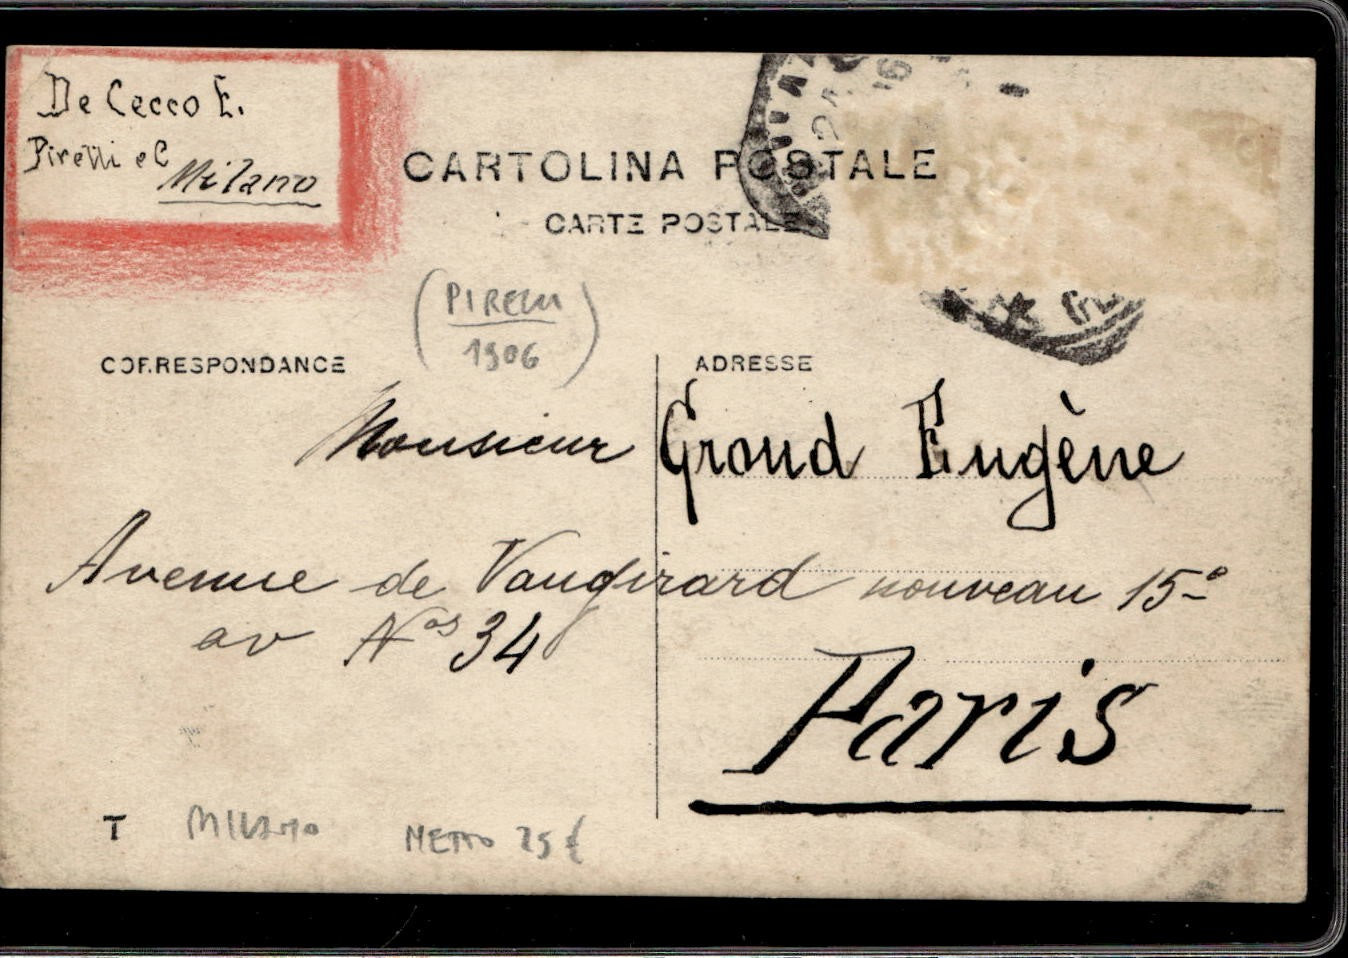 De Cecco E.
Pirelli e C
Milano
CARTOLINA POSTALE
CARTE POSTALE
(PIRELLI
1906)
CORRESPONDANCE
ADRESSE
Monsieur Grand Eugène
Avenue de Vaugirard nouveau 15º
av Nos 34
Paris
T
MILANO
NETTO 25 €